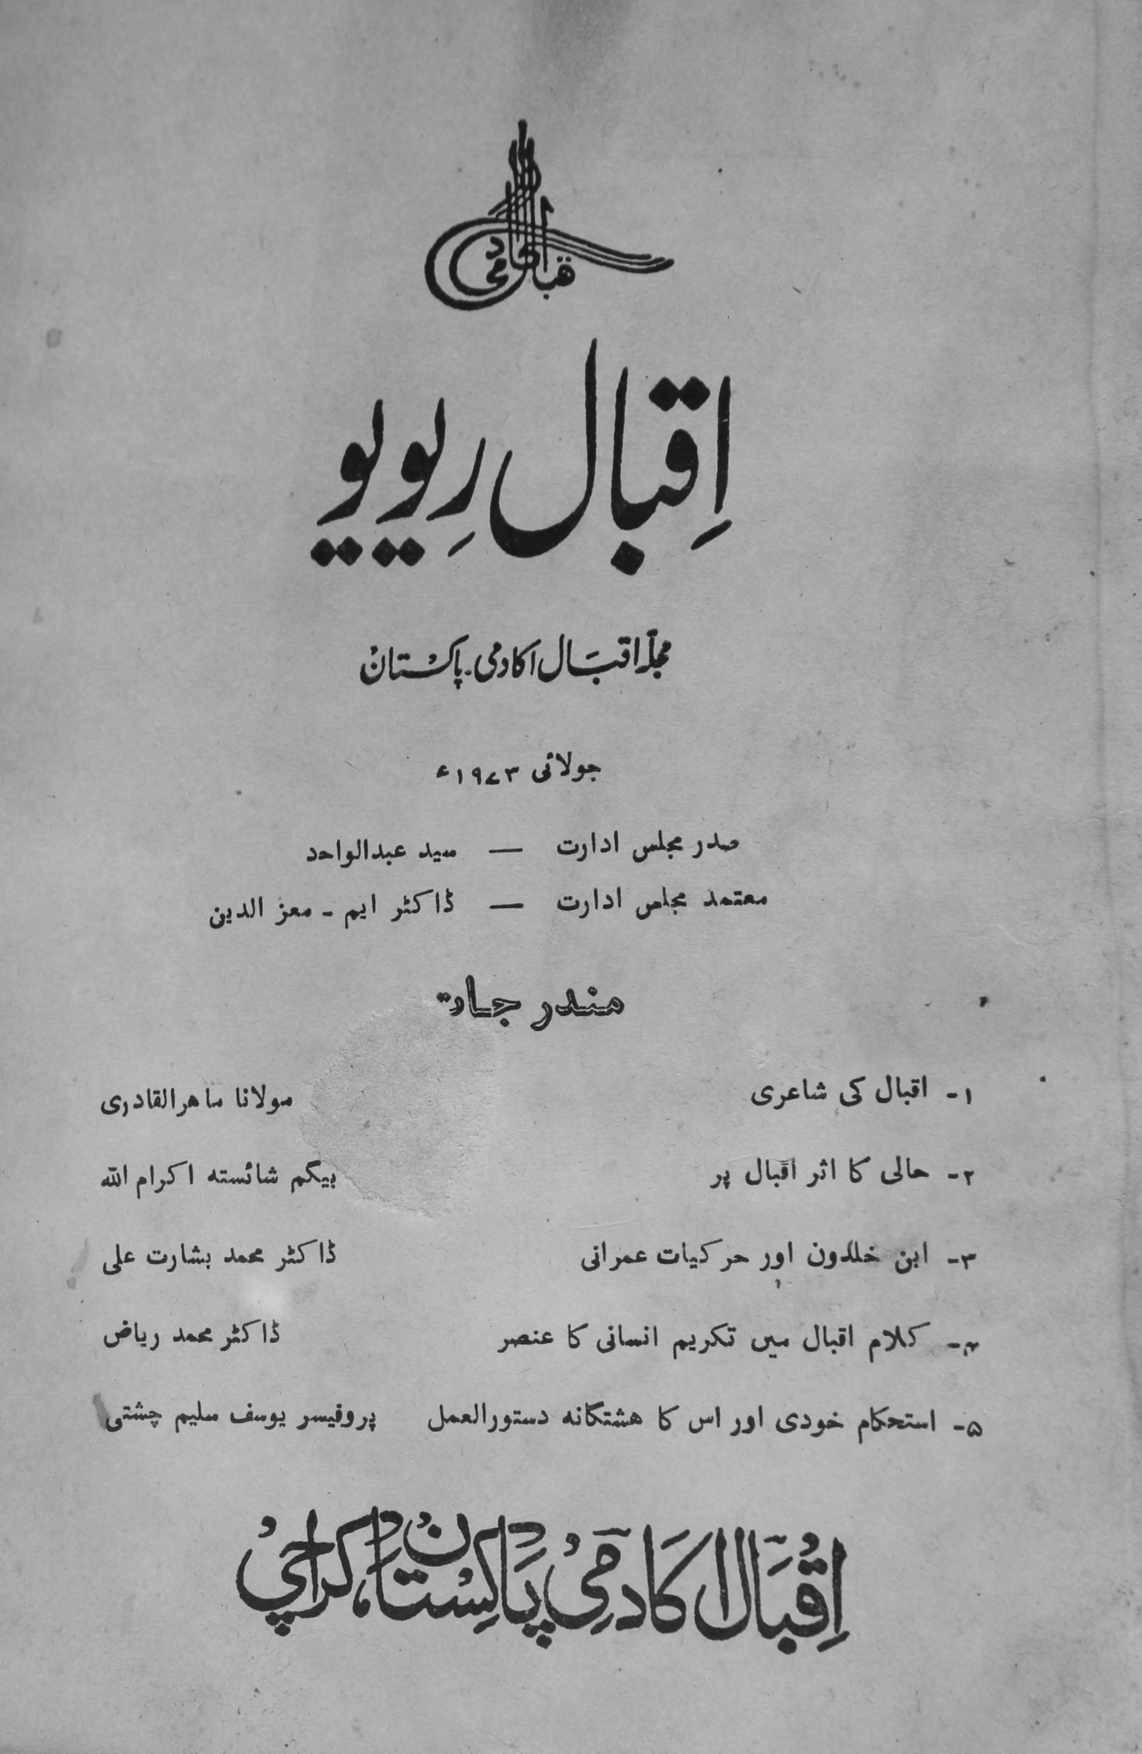 اقبال اکادمی
اِقبال رِیویو
مجلہ اقبال اکادمی۔ پاکستان
جولائی ۱۹۷۳ء
صدر مجلس ادارت — سید عبدالواحد
معتمد مجلس ادارت — ڈاکٹر ایم ۔ معز الدین
مندرجات
۱۔ اقبال کی شاعری مولانا ماہرالقادری
۲۔ حالی کا اثر اقبال پر بیگم شائستہ اکرام اللہ
۳۔ ابن خلدون اور حرکیات عمرانی ڈاکٹر محمد بشارت علی
۴۔ کلام اقبال میں تکریم انسانی کا عنصر ڈاکٹر محمد ریاض
۵۔ استحکام خودی اور اس کا ہشتگانہ دستورالعمل پروفیسر یوسف سلیم چشتی
اِقبَال اکادمی پاکِستان، کراچی